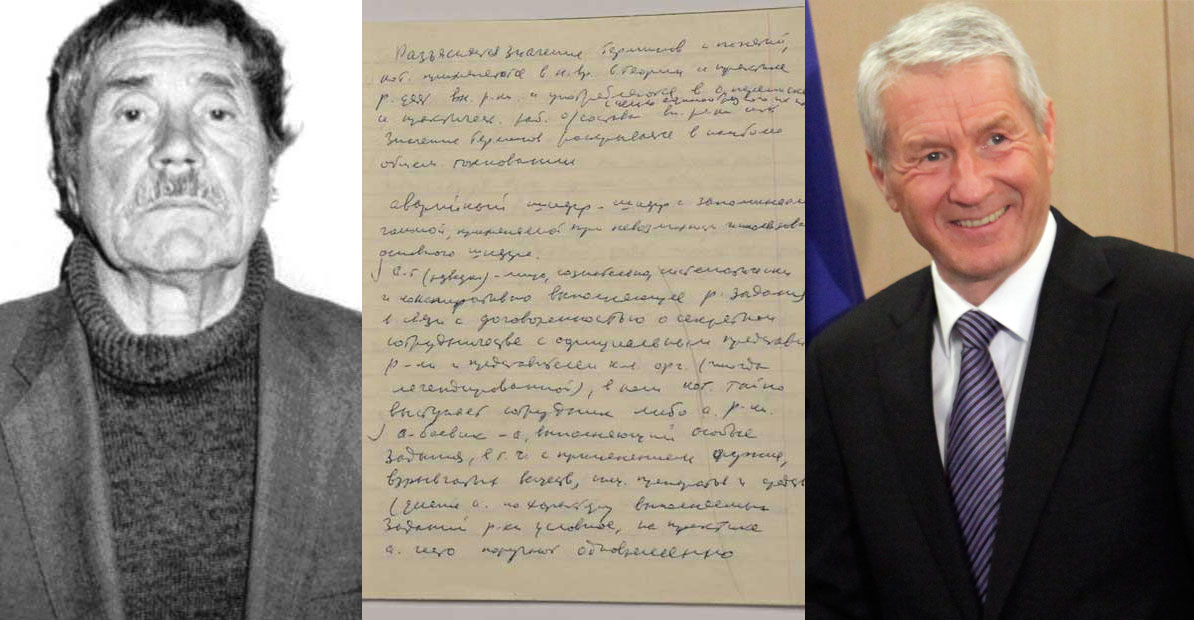 Разъясняется значение терминов и понятий,
кот. применяются в н.вр. в теории и практике
р. деят вн. р-ки и употребляются в оперативн
и практическ. раб. о/состава вн. р-ки
с целью единообразного их
Значение терминов раскрывается в наиболее
общем толковании
аварийный шифр - шифр с запоминаем
гаммой, применяемой при невозможн использова
основного шифра.
а-т (разведки) - лицо, сознательно, систематически
и конспиративно выполняющее р. задания
в связи с договоренностью о секретном
сотрудничестве с официальным представ
р-ки и представителем к-л. орг. (иногда
легендированной), в кач кот. тайно
выступает сотрудник либо а. р-ки.
а-боевик - а, выполняющий особые
задания, в т. ч. с применением оружия,
взрывчатых веществ, спец. препаратов и средст
(деление а. по характеру выполняемых
заданий р-ки условное, на практике
а. часто поручают одновременно